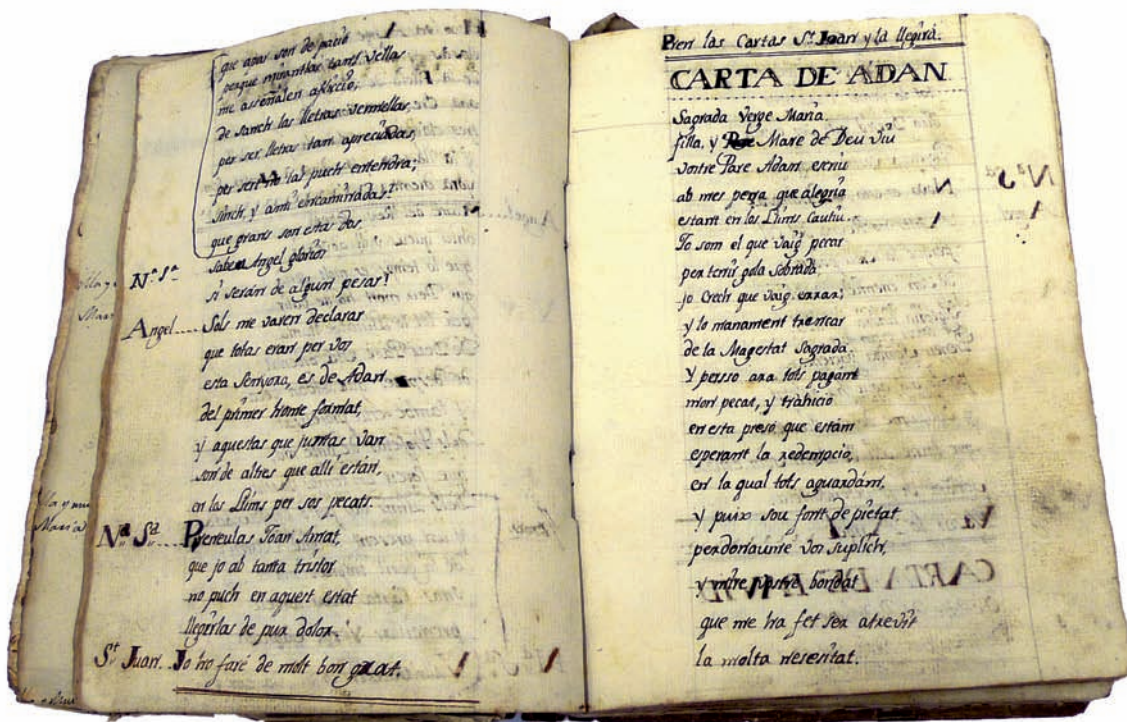 que apar son de pació
perque mirantlas tant vellas
me asseñalen aflicció,
de sanch las lletras vermellas,
per ser lletras tam apreciadas,
per sert no las puch entendra;
sinch, y amí encaminadas!
que grans son estas dos
Nª Sª sabeu Angel gloriós
si serán de algun pesar!
Angel Sols me varen declarar
que totas eran per vos
esta Senyora, es de Adan
del primer home format,
y aquestas que juntas van
son de altres que allí están,
en los Llims per sos pecats.
Nª Sª Preneulas Joan Amat,
que jo ab tanta tristor
no puch en aquest estat
llegirlas de pur dolor,
St Juan. Jo ho faré de molt bon grat.
Pren las Cartas St Joan y la llegirá.
CARTA DE ADAN
Sagrada Verge María.
filla, y Mare de Deu viu
vostre Pare Adan escriu
ab mes pena que alegría
estant en los Llims Cautíu.
Jo som el que vaig pecar
per tenir gola sobrada
jo Crech que vaig errar;
y lo manament trencar
de la Magestat Sagrada.
Y persso ara tots pagam
mon pecat, y trahició
en esta presó que estám
esperant la redempció,
en la qual tots aguardám,
y puix sou font de pietat
perdonaume vos suplich,
y mire vostre bondat
que me ha fet ser atrevit
la molta nesesitat.